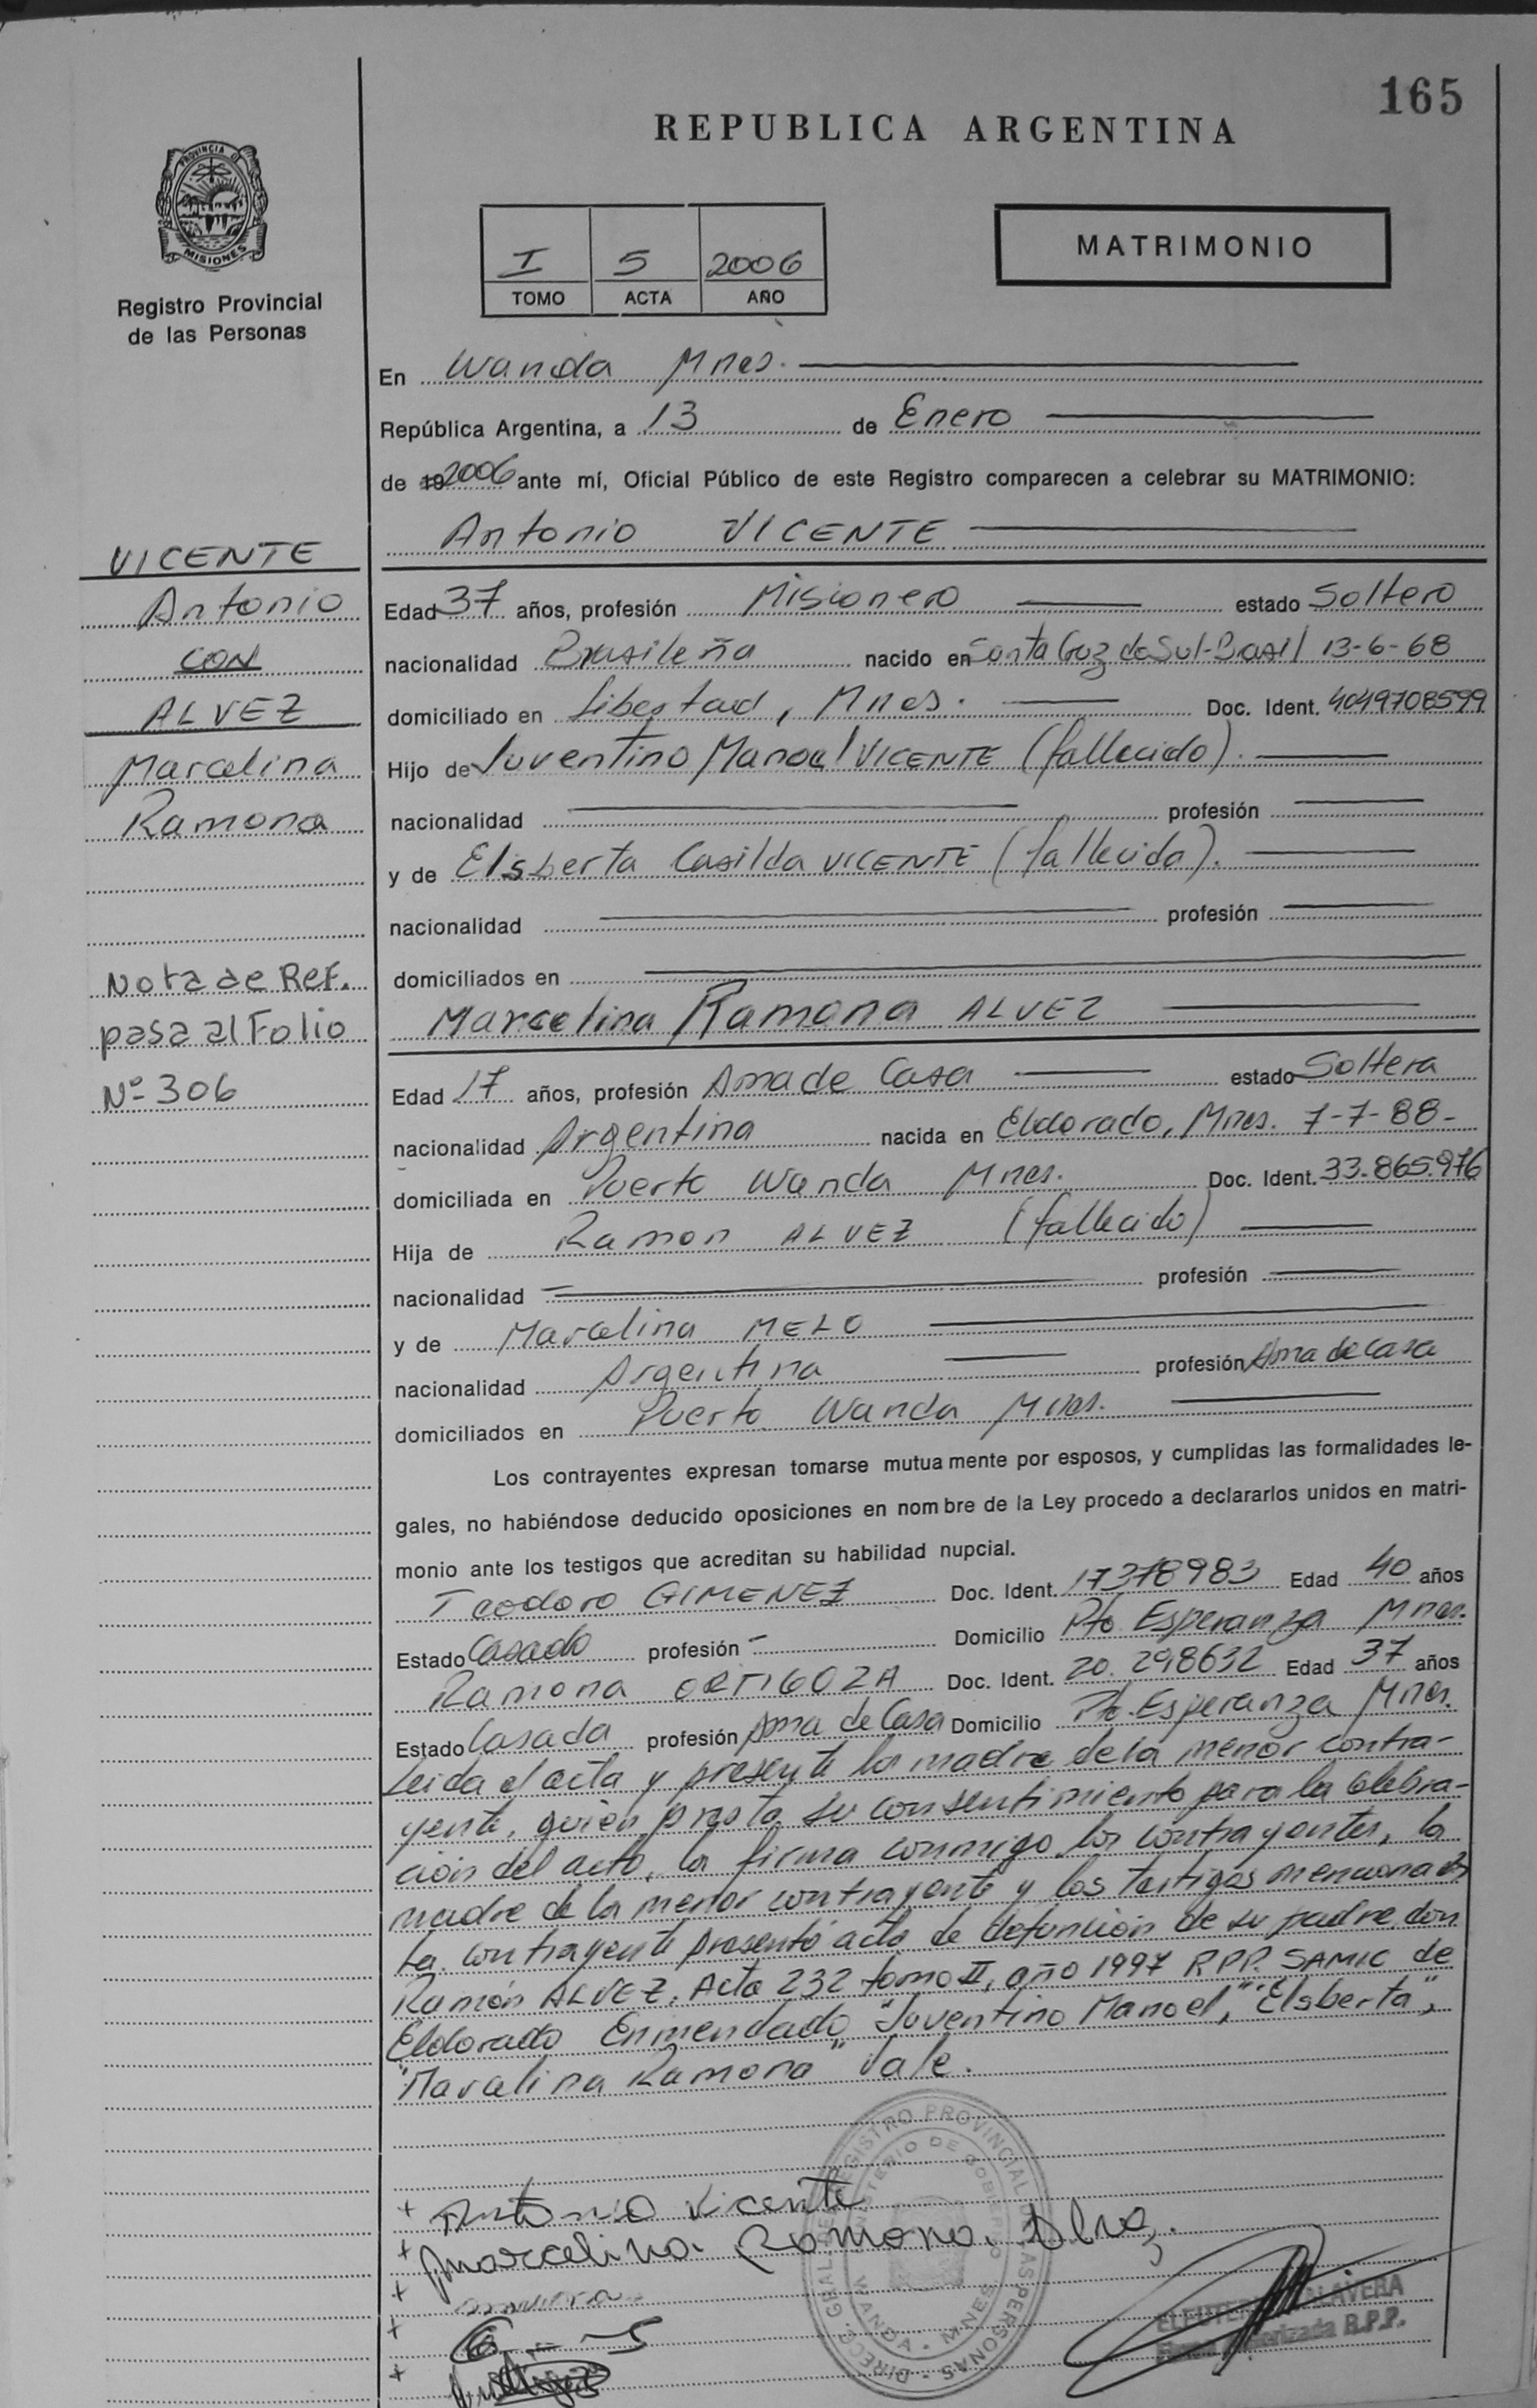 165
REPUBLICA ARGENTINA
PROVINCIA D
MISIONES
Registro Provincial
de las Personas
I 5 2006
TOMO ACTA AÑO
MATRIMONIO
En Wanda Mnes.
República Argentina, a 13 de Enero
de 19 2006 ante mí, Oficial Público de este Registro comparecen a celebrar su MATRIMONIO:
Antonio VICENTE
VICENTE
Antonio
CON
ALVEZ
Marcelina
Ramona
Nota de Ref.
pasa al Folio
Nº 306
Edad 37 años, profesión Misionero estado Soltero
nacionalidad Brasileña nacido en Santa Cruz do Sul-Brasil 13-6-68
domiciliado en Libertad, Mnes. Doc. Ident. 4049708599
Hijo de Juventino Manoel VICENTE (fallecido).
nacionalidad profesión
y de Elsberta Casilda VICENTE (fallecida).
nacionalidad profesión
domiciliados en
Marcelina Ramona ALVEZ
Edad 17 años, profesión Ama de Casa estado Soltera
nacionalidad Argentina nacida en Eldorado, Mnes. 7-7-88-
domiciliada en Puerto Wanda Mnes. Doc. Ident. 33.865.976
Hija de Ramon ALVEZ (fallecido)
nacionalidad profesión
y de Marcelina MELO
nacionalidad Argentina profesión Ama de Casa
domiciliados en Puerto Wanda Mnes.
Los contrayentes expresan tomarse mutuamente por esposos, y cumplidas las formalidades le-
gales, no habiéndose deducido oposiciones en nombre de la Ley procedo a declararlos unidos en matri-
monio ante los testigos que acreditan su habilidad nupcial.
Teodoro GIMENEZ Doc. Ident. 17378983 Edad 40 años
Estado Casado profesión - Domicilio Pto Esperanza Mnes.
Ramona ORTIGOZA Doc. Ident. 20.298632 Edad 37 años
Estado Casada profesión Ama de Casa Domicilio Pto. Esperanza Mnes.
Leida el acta y presente la madre de la menor contra-
yente, quien presta su consentimiento para la celebra-
ción del acto, la firma conmigo los contrayentes, la
madre de la menor contrayente y los testigos mencionados
La contrayente presentó acta de defunción de su padre don
Ramón ALVEZ, Acta 232 tomo II, año 1997 R.P.P. SAMIC de
Eldorado Enmendado "Juventino Manoel", "Elsberta",
"Marcelina Ramona" Vale.
+ Antonio Vicente
+ Marcelina Ramona Alvez.
+
+
+
DIREC. GRAL. DE REGISTRO PROVINCIAL DE LAS PERSONAS
MINISTERIO DE GOBIERNO
WANDA - MNES
TALAVERA
Firma Autorizada R.P.P.